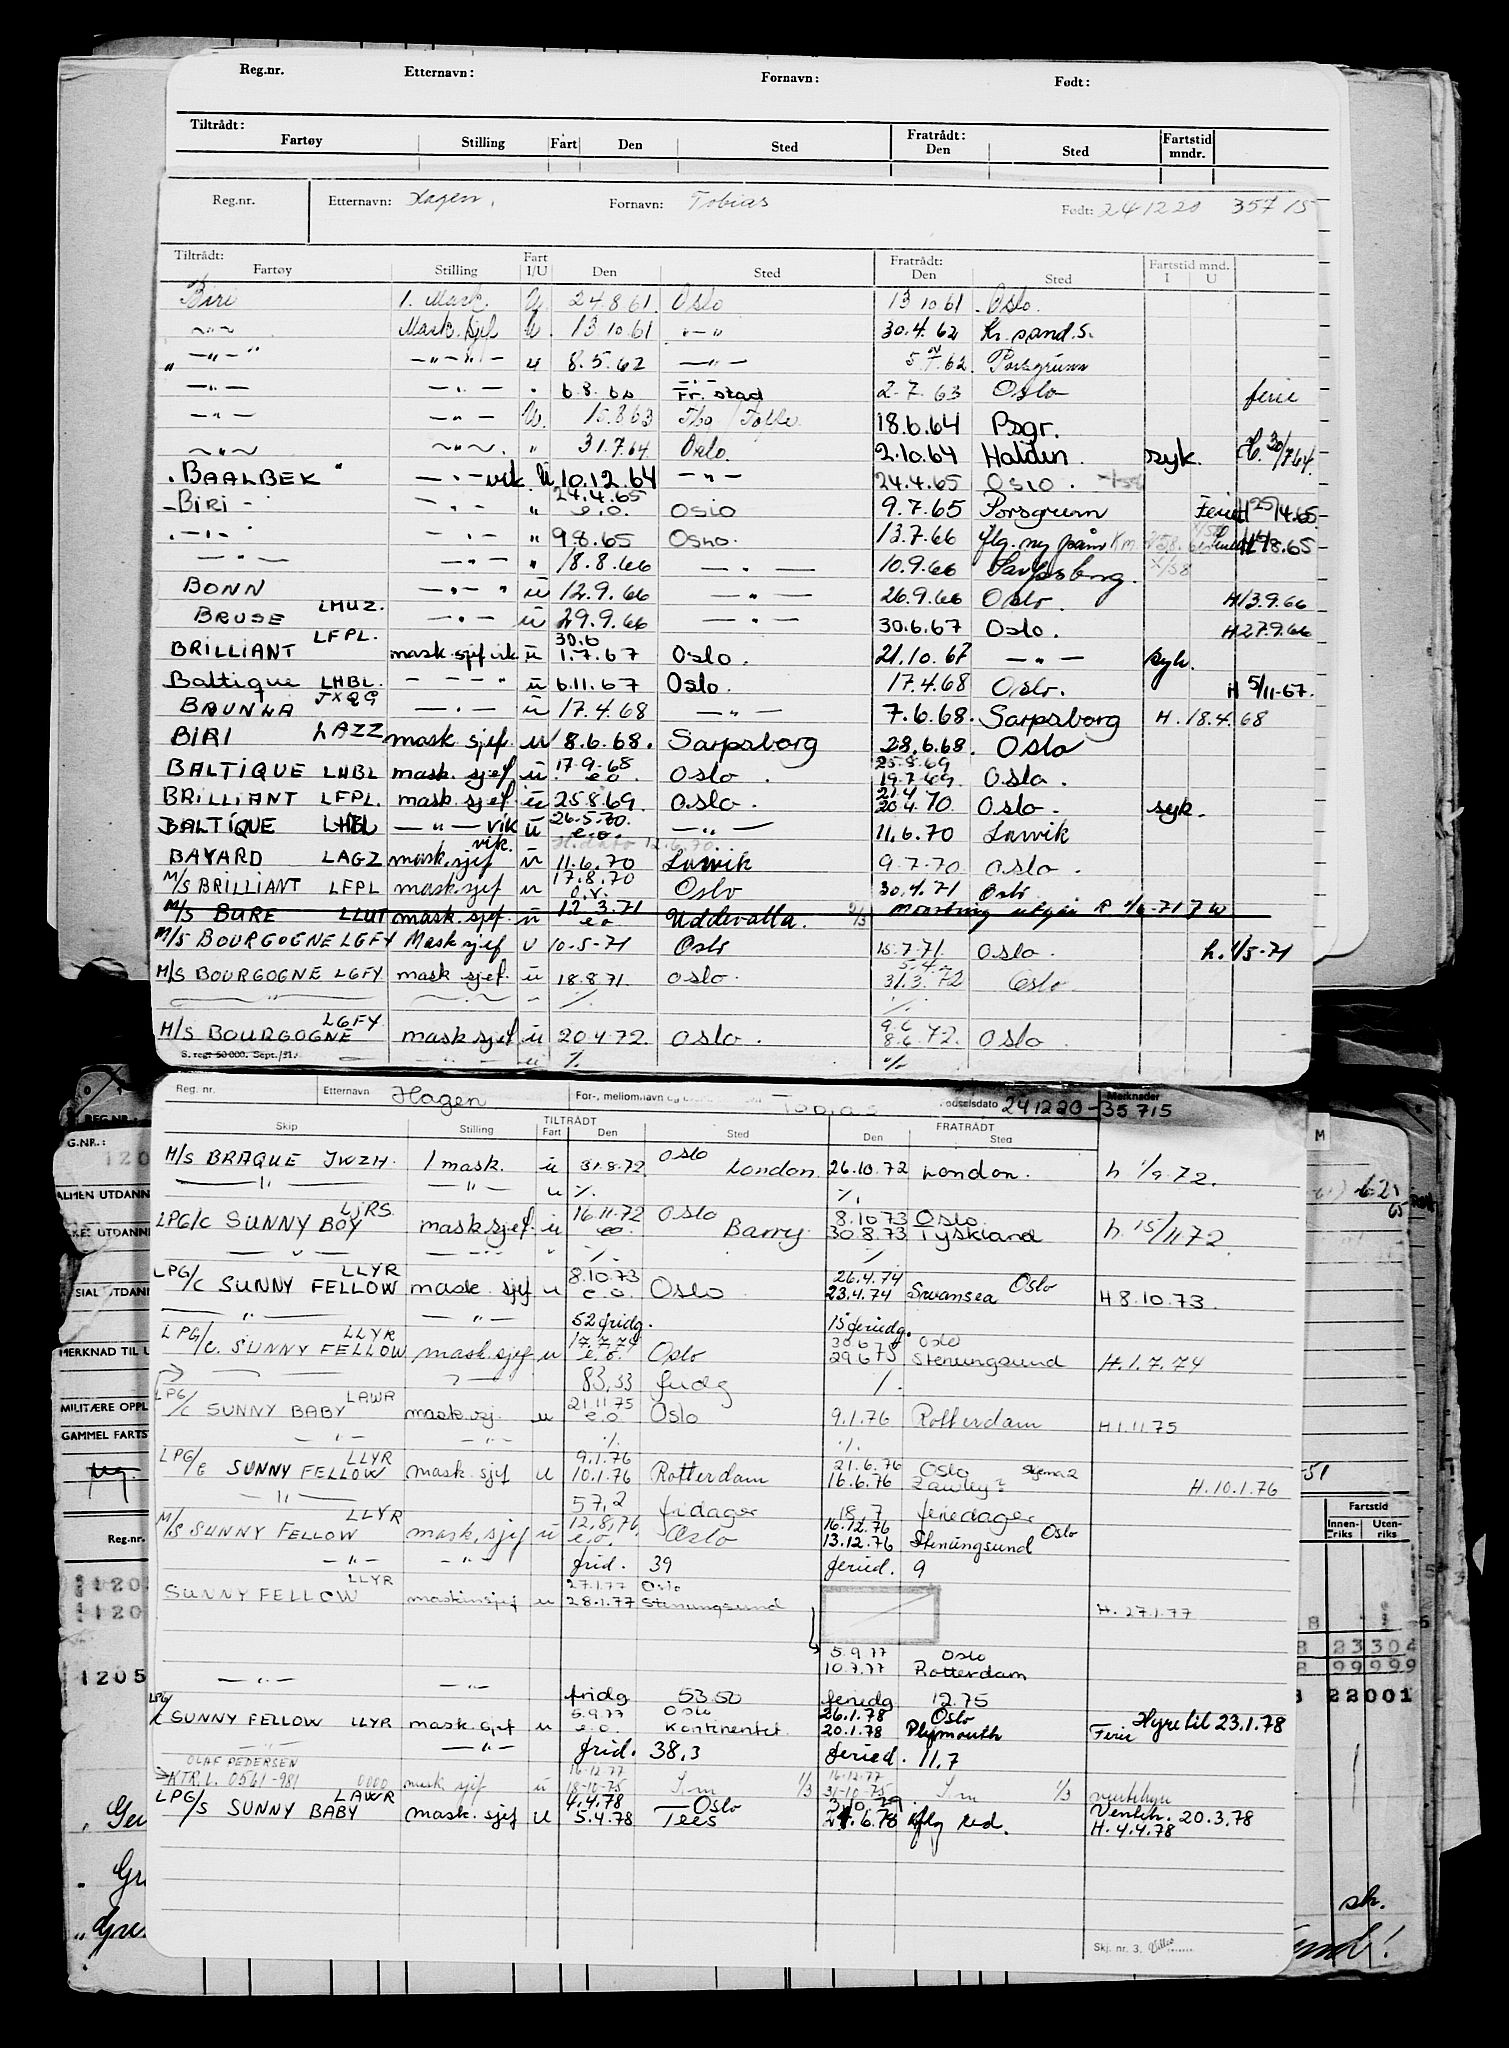 Reg.nr. Etternavn: Fornavn: Født:
Tiltrådt: Fratrådt: Fartstid
Fartøy Stilling Fart Den Sted Den Sted mndr.
Reg.nr. Etternavn: Hagen, Fornavn: Tobias Født: 241220 35715
Tiltrådt: Fart Fratrådt: Fartstid mnd.
Fartøy Stilling I/U Den Sted Den Sted I U
Biri 1. Mask. U. 24.8.61. Oslo 13 10 61 . Oslo.
-"- Mask. sjef U. 13 10.61 -"- 30.4.62 Kr.sand.S.
" -"-" -"-"- u 8.5.62 -"- 5. 62. Porsgrunn
-"- -"- " 6.8. Fr.stad 2.7.63 Oslo ferie
-"- -"- U. 15.8.63 18.6.64 Psgr.
-"- -"-. " 31.7.64. Oslo. 2.10.64 Halden. syk. H. 30/7 64.
. BAALBEK " -"- vik. U 10.12.64 -"- 24.4.65 OSLO.
24.4.65
- BIRI - -"- " e.o. OSLO 9.7.65 Porsgrunn Ferie H 25/4.65.
. -"- -"- " 9.8.65 Oslo. 13.7.66 flg. ny påm H 8.65
-"- -"- " 18.8.66 -"- 10.9.66 Sarpsborg.
BONN -"- " u 12.9.66 -"- 26.9.66 Oslo. H13.9.66
LMUZ.
BRUSE -"- u 29.9.66 -"- 30.6.67 Oslo. H27.9.66
LFPL. 30.6
BRILLIANT mask.sjef vik u 1.7.67 Oslo. 21.10.67 -"- syk.
Baltique LHBL. - - - " u 6.11.67 Oslo. 17.4.68 Oslo. H 5/11-67.
JXQG
BAUNLA -"- u 17.4.68 -"- 7.6.68. Sarpsborg H. 18.4.68
BIRI LAZZ mask.sjef. u 8.6.68. Sarpsborg 28.6.68. Oslo
17.9.68 25.8.69
BALTIQUE LHBL mask. sjef u e.o. Oslo. 19.7.69. Oslo.
21.4
BRILLIANT LFPL. mask.sjef. u 25.8.69. Oslo. 20.4.70. Oslo. syk.
26.5.70.
BALTIQUE LHBL -"- vik u e.o. -"- 11.6.70 Larvik
vik. 12.6.70.
BAYARD LAGZ mask.sjef u 11.6.70 Larvik 9.7.70 Oslo.
17.8.70
M/S BRILLIANT LFPL mask.sjef u o.v. Oslo 30.4.71 Oslo
12.3.71
M/S BURE LLUT mask.sjef. u e.o Uddevalla. 2/3 mønstring utgår
M/S BOURGOGNE LGFY Mask sjef U 10-5-71 Oslo 15.7.71. Oslo. h. 1/5-71
5.4.
M/S BOURGOGNE LGFY. mask sjef. u 18.8.71. Oslo. 31.3.72 Oslo.
-"- -"- - %. %.
LGFY 9.6
M/S BOURGOGNE mask.sjef. u 20.4.72. Oslo. 8.6.72. Oslo.
S. regr 50 000. Sept./51. - " - u %. %.
Reg. nr. Etternavn Hagen For-, mellomnavn og Tobias Fødselsdato 241220-35715 Merknader
TILTRÅDT FRATRÅDT
Skip Stilling Fart Den Sted Den Sted
M/S BRAQUE JWZH. 1 mask. u 31.8.72. Oslo London. 26.10.72 London. h 1/9.72.
-"- -"- u %. %.
LJRS 16.11.72 8.10.73 Oslo
LPG/C SUNNY BOY mask.sjef. u eo. Oslo Barry. 30.8.73 Tyskland h. 15/11 72.
-"- -"- " %. %.
LLYR 8.10.73 26.4.74 Oslo
LPG/C SUNNY FELLOW mask. sjef u e.o. Oslo 23.4.74 Swansea H 8.10.73.
-"- -"- 52 fridg. 15 feriedg.
LPG/C. LLYR 17.7.74 30 6 75 Oslo
SUNNY FELLOW mask.sjef u e.o. Oslo 29 6 75 Stenungsund H.1.7.74
83,33 fridg %.
LPG/C LAWR 21.11.75
SUNNY BABY mask.sj. u e.o Oslo 9.1.76 Rotterdam H 1.11.75
-"- -"- %. %.
LPG/C LLYR 9.1.76 21.6.76 Oslo Skjema 2
SUNNY FELLOW mask.sjef u 10.1.76 Rotterdam 16.6.76 H.10.1.76
-"- 57,2 fridager 18.7 feriedager
LLYR 12.8.76 16.12.76 Oslo
M/S SUNNY FELLOW mask.sjef u e.o. Oslo 13.12.76 Stenungsund
-"- -"- frid. 39 feried. 9
LLYR 27.1.77 Oslo
SUNNY FELLOW maskinsjef u 28.1.77 Stenungsund H. 27.1.77
5.9.77 Oslo
10.7.77 Rotterdam
-"- -"- fridg 53.50 feriedg 12.75
LPG/C 5.9.77 Oslo 26.1.78 Oslo Hyre til 23.1.78
SUNNY FELLOW LLYR mask.sjef u e.o. Kontinentet. 20.1.78 Plymouth Ferie
-"- -"- frid. 38,3 feried. 11,7
OLAF PEDERSEN 16-12-77 16-12-77
KTR.L. 0561-981 0000 mask sjef u 18-10-75 S.m 1/3 31-10-75 S.m 1/3 ventehyre
LPG/S LAWR 4.4.78 Oslo Venteh. 20.3.78
SUNNY BABY mask.sjef u 5.4.78 Tees .6.78 flg red. H. 4.4.78
Skj. nr. 3.
REG.NR.:
G.NR.:
ALMEN UTDANN
MERKNAD TIL U
MILITÆRE OPPL
GAMMEL FARTS
Reg.nr.
1205
M
-51
Fartstid
Innen-riks Uten-riks
23304
99999
22001
sk.